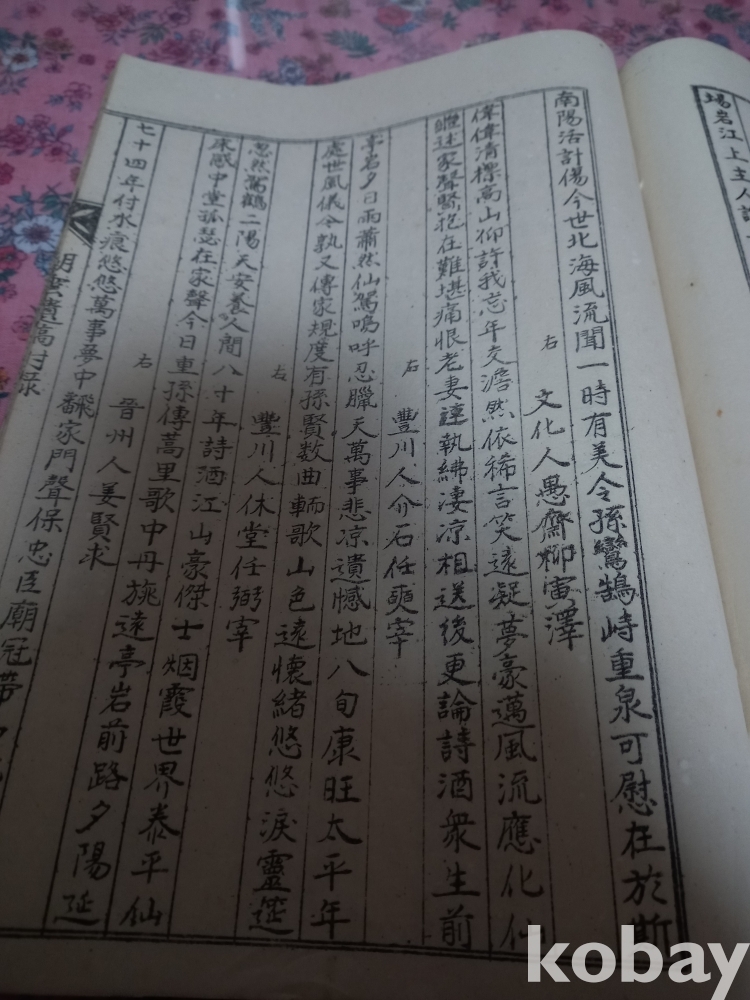 場岩江上主人
南陽活計傷今世北海風流聞一時有美令孫鸞鵠峙重泉可慰在於斯
右 文化人愚齋柳寅澤
偉偉清標高山仰許我忘年交澹然依稀言笑遠凝夢豪邁風流應化仙
述家聲在難堪痛恨老妻連執紼淒凉相送後更論詩酒衆生前
右 豐川人介石任奭宰
亭岩夕日雨蕭然仙駕嗚呼忍臘天萬事悲凉遺憾地八旬康旺太平年
處世風儀今孰又傳家規度有孫賢数曲輀歌山色遠懷緒悠悠淚靈筵
右 豐川人休堂任弼宰
忽然駕鶴二陽天安養人間八十年詩酒江山豪傑士烟霞世界泰平仙
床感中堂孤瑟在家聲今日重孫傳萬里歌中丹旐遠亭岩前路夕陽延
右 晉州人姜賢求
七十四年付水痕悠悠萬事夢中飜家門聲保忠臣廟冠帶
遺稿付錄
kobay